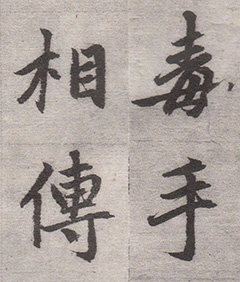 毒手
相傳